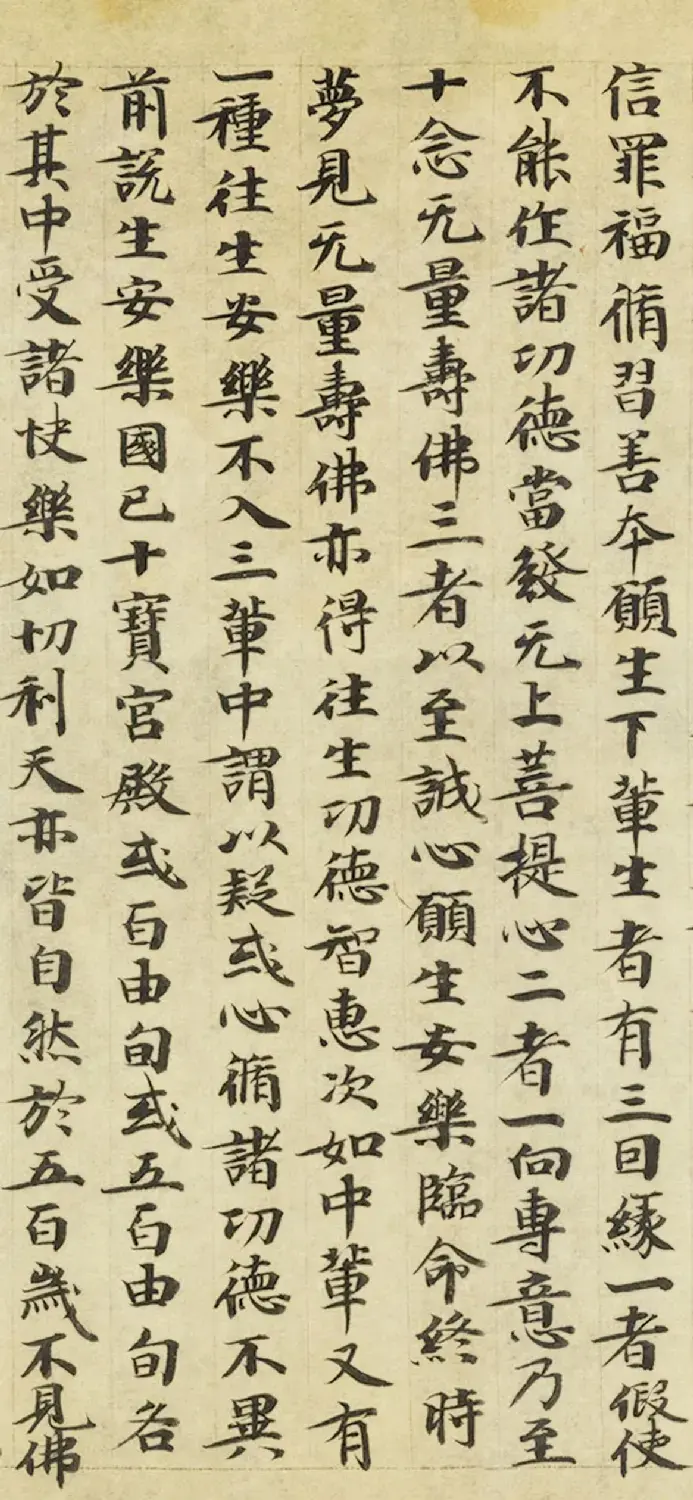 信罪福脩習善本願生下輩生者有三因緣一者假使
不能作諸功德當發无上菩提心二者一向專意乃至
十念念无量壽佛三者以至誠心願生安樂臨命終時
夢見无量壽佛亦得往生功德智惠次如中輩又有
一種往生安樂不入三輩中謂以疑或心脩諸功德不異
前說生安樂國已十寶宮殿或百由旬或五百由旬各
於其中受諸快樂如忉利天亦皆自然於五百歲不見佛